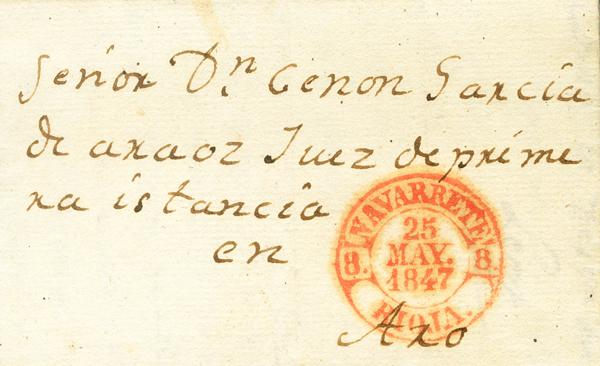 Señor Dn Cenon Garcia
de araoz Juez de prime
ra istancia
en
Axo
NAVARRETE
8. 25 8.
MAY.
1847
RIOJA.